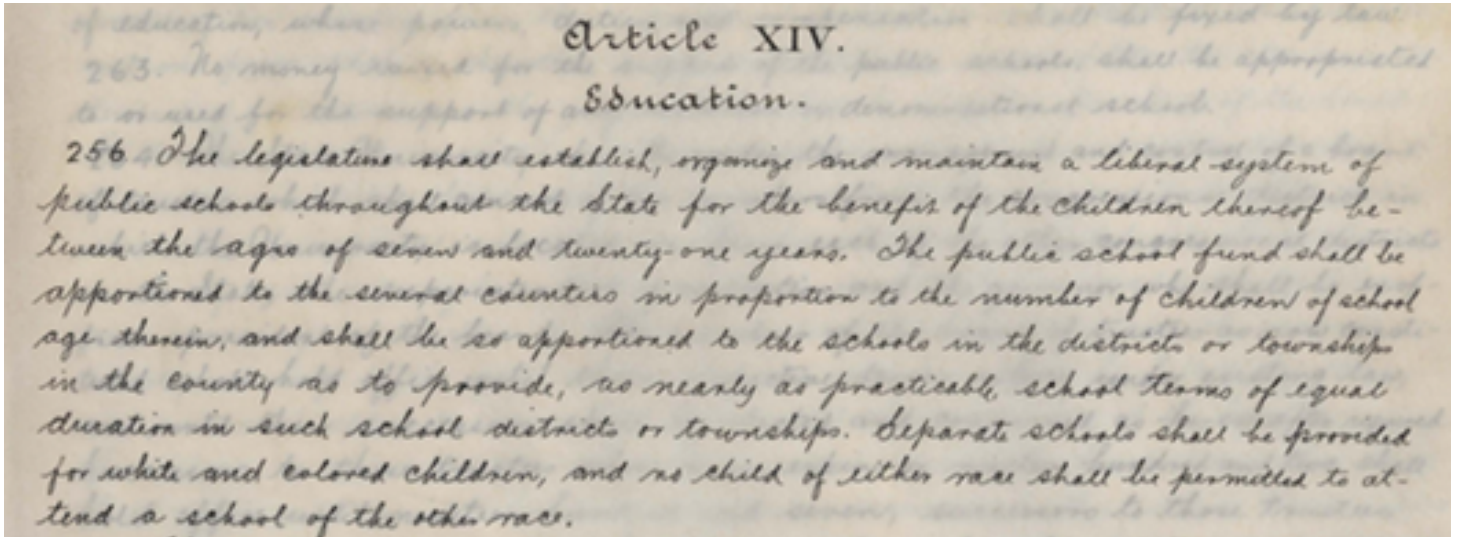 Article XIV.
Education.
256 The legislature shall establish, organize and maintain a liberal system of
public schools throughout the State for the benefit of the children thereof be-
tween the ages of seven and twenty-one years. The public school fund shall be
apportioned to the several counties in proportion to the number of children of school
age therein, and shall be so apportioned to the schools in the districts or townships
in the county as to provide, as nearly as practicable, school terms of equal
duration in such school districts or townships. Separate schools shall be provided
for white and colored children, and no child of either race shall be permitted to at-
tend a school of the other race.